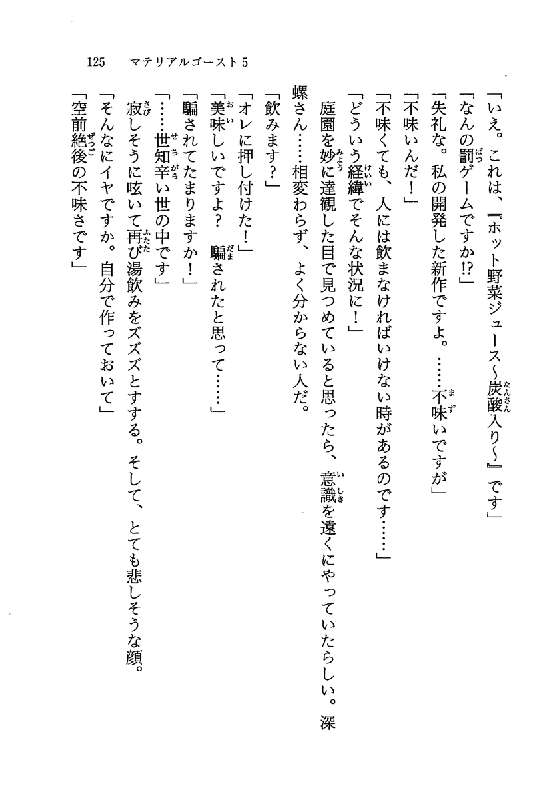 125　マテリアルゴースト5
「いえ。これは、『ホット野菜ジュース～炭酸入り～』です」
「なんの罰ゲームですか!?」
「失礼な。私の開発した新作ですよ。……不味いですが」
「不味いんだ！」
「不味くても、人には飲まなければいけない時があるのです……」
「どういう経緯でそんな状況に！」
　庭園を妙に達観した目で見つめていると思ったら、意識を遠くにやっていたらしい。深
螺さん……相変わらず、よく分からない人だ。
「飲みます？」
「オレに押し付けた！」
「美味しいですよ？　騙されたと思って……」
「騙されてたまりますか！」
「……世知辛い世の中です」
　寂しそうに呟いて再び湯飲みをズズズとすする。そして、とても悲しそうな顔。
「そんなにイヤですか。自分で作っておいて」
「空前絶後の不味さです」